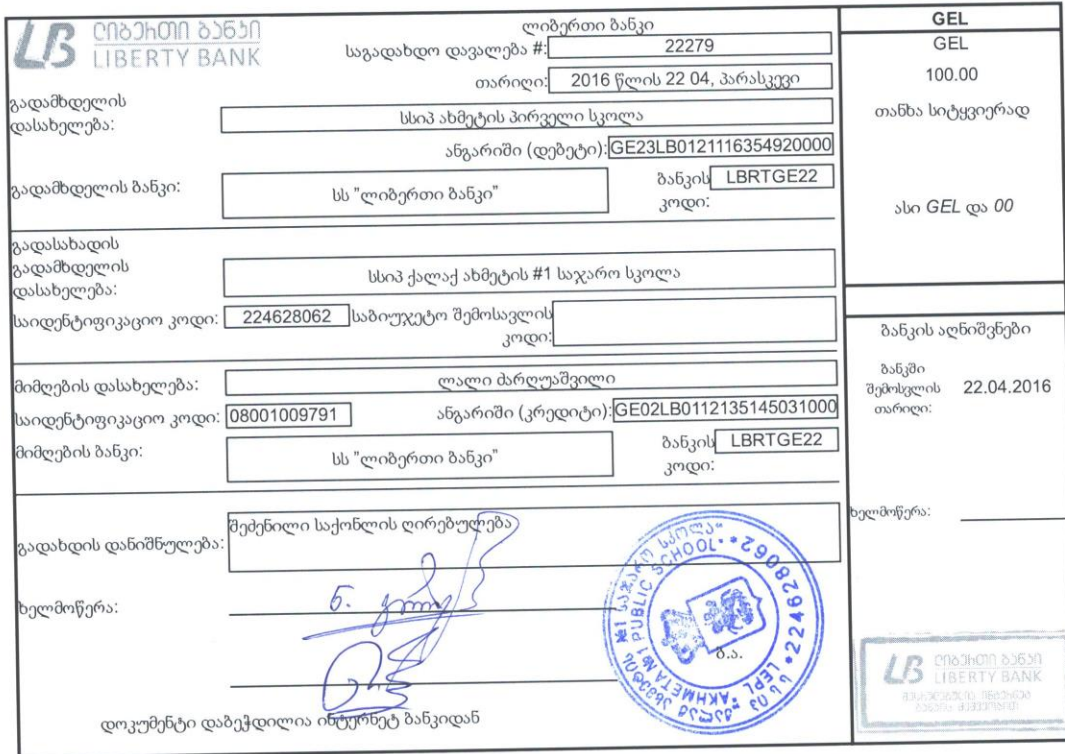 ლიბერთი ბანკი
LIBERTY BANK
ლიბერთი ბანკი
საგადახდო დავალება #: 22279
თარიღი: 2016 წლის 22 04, პარასკევი
გადამხდელის დასახელება: სსიპ ახმეტის პირველი სკოლა
ანგარიში (დებეტი): GE23LB0121116354920000
გადამხდელის ბანკი: სს "ლიბერთი ბანკი" ბანკის კოდი: LBRTGE22
გადასახადის
გადამხდელის
დასახელება: სსიპ ქალაქ ახმეტის #1 საჯარო სკოლა
საიდენტიფიკაციო კოდი: 224628062 საბიუჯეტო შემოსავლის კოდი:
მიმღების დასახელება: ლალი ძარღუაშვილი
საიდენტიფიკაციო კოდი: 08001009791 ანგარიში (კრედიტი): GE02LB0112135145031000
მიმღების ბანკი: სს "ლიბერთი ბანკი" ბანკის კოდი: LBRTGE22
გადახდის დანიშნულება: შეძენილი საქონლის ღირებულება
ხელმოწერა:
ბ.ა.
დოკუმენტი დაბეჭდილია ინტერნეტ ბანკიდან
GEL
GEL
100.00
თანხა სიტყვიერად
ასი GEL და 00
ბანკის აღნიშვნები
ბანკში
შემოსვლის
თარიღი: 22.04.2016
ხელმოწერა:
№1 საჯარო სკოლა" *224628062*
LEPL "AKHMETA №1 PUBLIC SCHOOL"
ლიბერთი ბანკი
LIBERTY BANK